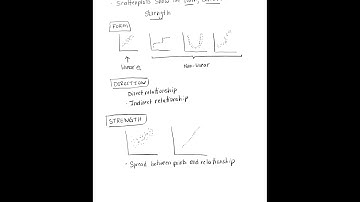 · Scatterplots show the
Strength
FORM
Linear
Non-linear
DIRECTION
Direct relationship
· Indirect relationship
STRENGTH
· Spread between points and relationship